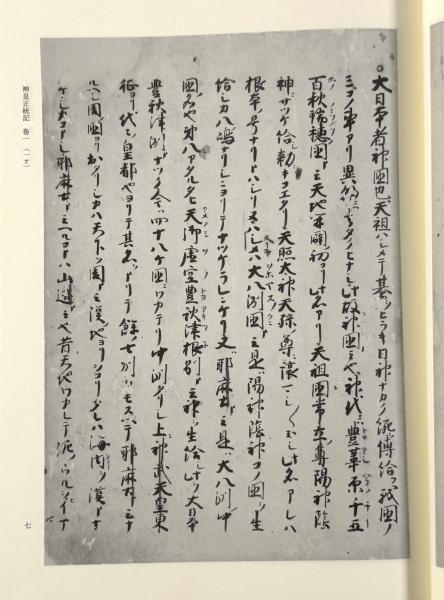 大日本者神國也天祖ハシメテ基ヲヒラキ日神ナカク統ヲ傳給フ我國ノ
ミコノ事アリ異朝ニハ其タクヒナシ此故ニ神國ト云也神代ニハ豊葦原千五
百秋瑞穂國ト云天地開闢ノ初ヨリ此名アリ天祖國常立尊陽神陰
神ニサツケ給シ勅ニキコエタリ天照太神天孫尊ニ譲マシマシシニモ此名アレハ
根本ノ号ナリトハシリヌヘシ又ハ大八洲國ト云是ハ陽神陰神コノ國ヲ生
給シカ八ノ嶋ナリシニヨリテナツケラレシケリ又ハ耶麻土ト云是ハ大八洲中
國ノ名也第八ニアタルタヒ天御虚空豊秋津根別ト云神ヲ生給コレヲ大日本
豊秋津洲トナツク今ハ四十八ケ國ニワカテリ中洲タリシ上ニ神武天皇東
征ヨリ代々ノ皇都也ヨリテ其名ヲトリテ餘ノ七洲ヲモスヘテ耶麻土ト云ナル
ヘシ周國ヨリ出タリシカハ天下ヲ周ト云漢地ヨリヲコリタレハ海内ヲ漢トナ
ツケシカコトシ耶麻土ト云ヘルコトハ山迹ト云也昔天地ワカレテ泥ノウルヲイイマタ
神皇正統記 巻一 (一オ)
七